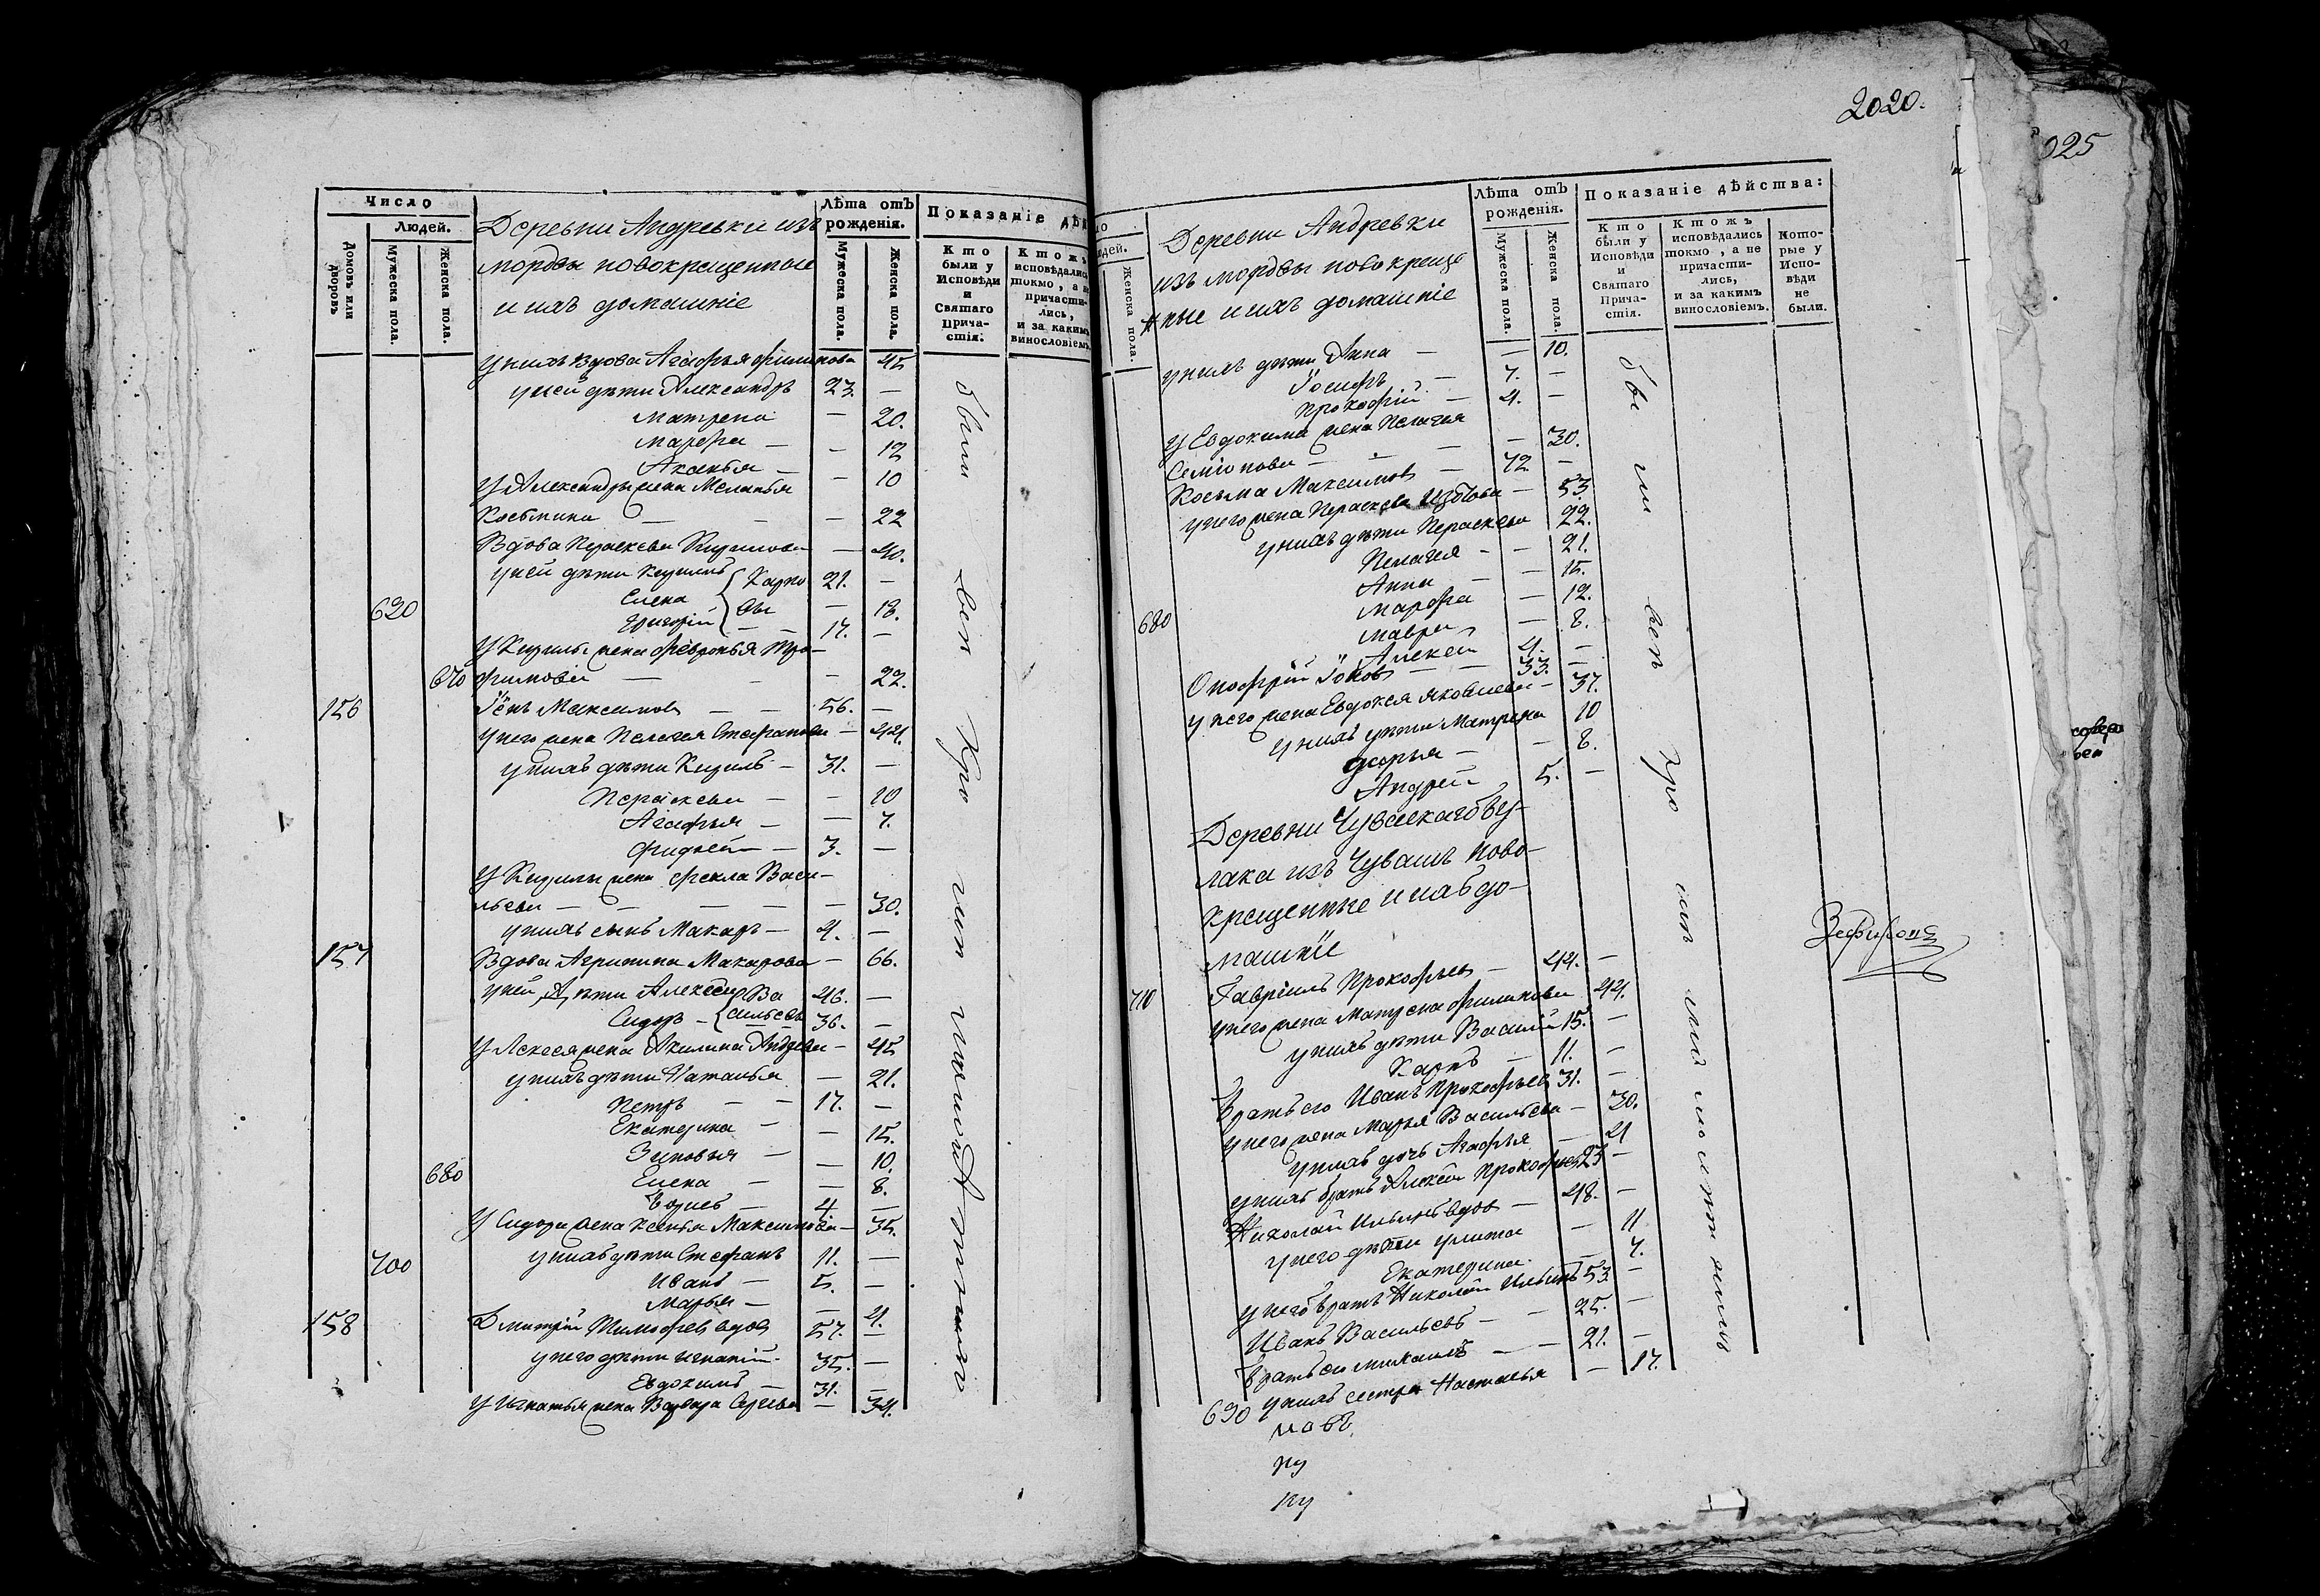 Число
Людей.
Домовъ или дворовъ
Мужеска пола.
Женска пола.
Деревни Андревки изъ
мордвы новокрещенные
и ихъ домашніе
Лѣта отъ рожденія.
Мужеска пола.
Женска пола.
Показаніе дѣй
Кто были у Исповѣди и Святаго Прича- стія.
Ктожъ исповѣдались токмо, а не причасти- лись, и за какимъ винословіемъ.
у нихъ вдова Агафья Филипова 45
у ней дѣти Александръ 23. —
Матрена — 20.
Марфа — — 12
Акилья — — 10
У Александры жена Меланья
Косьмина — — — 22
Вдова Параскева Кирилова — 40.
у ней дѣти Кирилъ { Карпо 21. —
Елена { вы — 18.
620 Григорій { — — 17. —
У Кирилы жена Февронья Тро-
670 фимова — — — 22.
156 Іонъ Максимовъ — — 56. —
у него жена Пелагея Стефанова — 44.
у нихъ дѣти Кирилъ — 31. —
Параскева — — 10
Агафья — — 7.
3. —
У Кирилы жена Фекла Васи-
льева — — — — — 30.
у нихъ сынъ Макаръ — 4. —
157 Вдова Агрипина Макарова — 66.
у ней дѣти Алексѣй { Ва 46. —
Сидоръ — { сильевы 36. —
У Алексея жена Акилина Андрева — 45
у нихъ дѣти Наталья — 21.
Петръ — — 17. —
Екатерина — — 15.
Зиновья — — 10.
680 Елена — — 8.
4 —
У Сидора жена Ксенья Максимова — 35.
у нихъ дѣти Стефанъ 11. —
700 Иванъ — 5. —
Марья — — 4.
158 Дмитрій Тимофеевъ вдовъ 57. —
у него дѣти Игнатій — 35. —
Евдокимъ — 31. —
У Игнатья жена Варвара Сергева — 34.
были
2020.
025
Женска пола.
Деревни Андревки
изъ мордвы новокреще
нные и ихъ домашніе
Лѣта отъ рожденія.
Мужеска пола.
Женска пола.
Показаніе дѣйства:
Кто были у Исповѣди и Святаго Прича- стія.
Ктожъ исповѣдались токмо, а не причасти- лись, и за какимъ винословіемъ.
Кото- рые у Испо- вѣди не были.
у нихъ дѣти Анна — — 10.
Іосифъ — 7. —
Прокофій — 4. —
У Евдокима жена Пелагея
Семіонова — — — — 30.
Косьма Максимовъ — 72 —
у него жена Параскева — 53
у нихъ дѣти Параскева 22.
Пелагея — — 21.
Анна — — 15.
Марфа — 12.
680 Мавра — 8.
Алексѣй 4. —
Онофрій Іоновъ — — 33. —
у него жена Евдокея Яковлева — 37.
у нихъ дѣти Матрена 10
Дарья — — 8.
Андрей 5. —
Деревни Чувашскаго бу-
лака изъ Чувашъ ново-
крещенные и ихъ до-
машніе
Гавріилъ Прокофьевъ — 44. —
710 у него жена Матрена Филипова 44.
у нихъ дѣти Василій 15. —
Карпъ — 11. —
братъ его Иванъ Прокофьевъ 31. —
у него жена Марья Васильева — 30.
у нихъ дочь Агафья — 4
у нихъ братъ Алексѣй Прокофьевъ 23 —
Николай Ильинъ вдовъ — 48. —
у него дѣти Улита — 11
Екатерина — 7.
у него братъ Николай Ильинъ 53 —
Иванъ Васильевъ — — 25. —
братъ его Михаилъ — — 21. —
690 у нихъ сестра Настасья — 17.